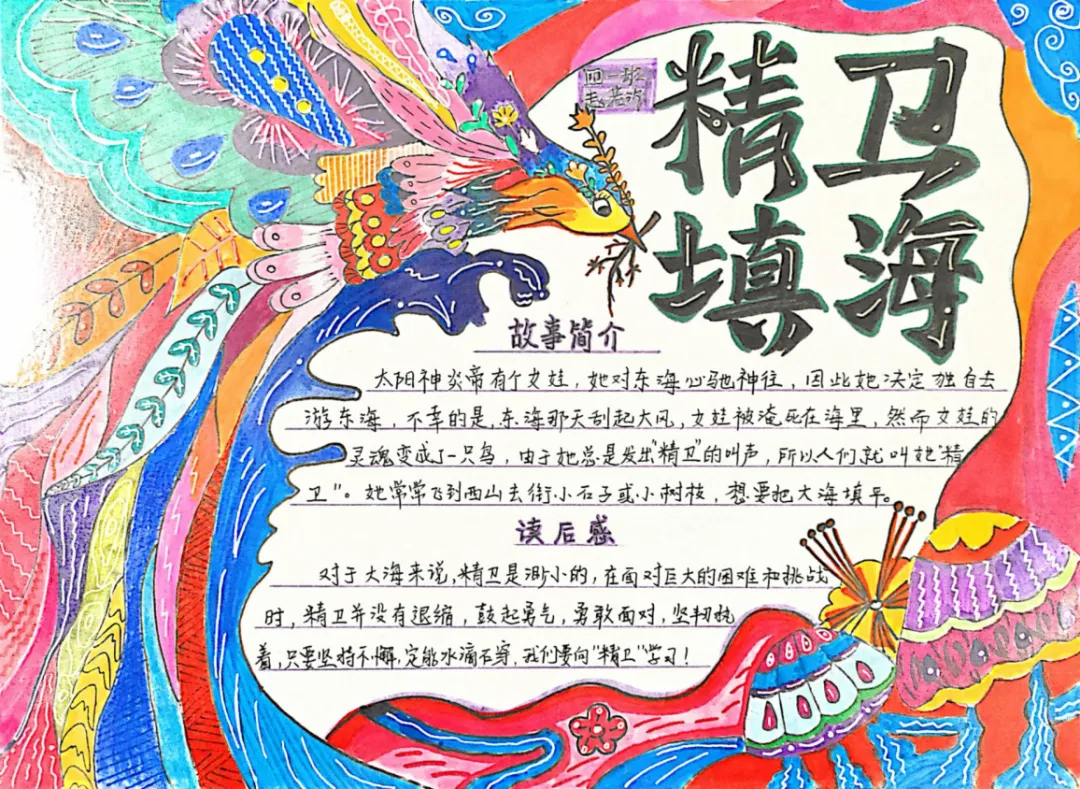 四一班
精卫
填海
故事简介
太阳神炎帝有个女娃，她对东海心驰神往，因此她决定独自去
游东海，不幸的是，东海那天刮起大风，女娃被淹死在海里，然而女娃的
灵魂变成了一只鸟，由于她总是发出"精卫"的叫声，所以人们就叫她"精
卫"。她常常飞到西山去衔小石子或小树枝，想要把大海填平。
读后感
对于大海来说，精卫是渺小的，在面对巨大的困难和挑战
时，精卫并没有退缩，鼓起勇气，勇敢面对，坚韧执
着，只要坚持不懈，定能水滴石穿，我们要向"精卫"学习！